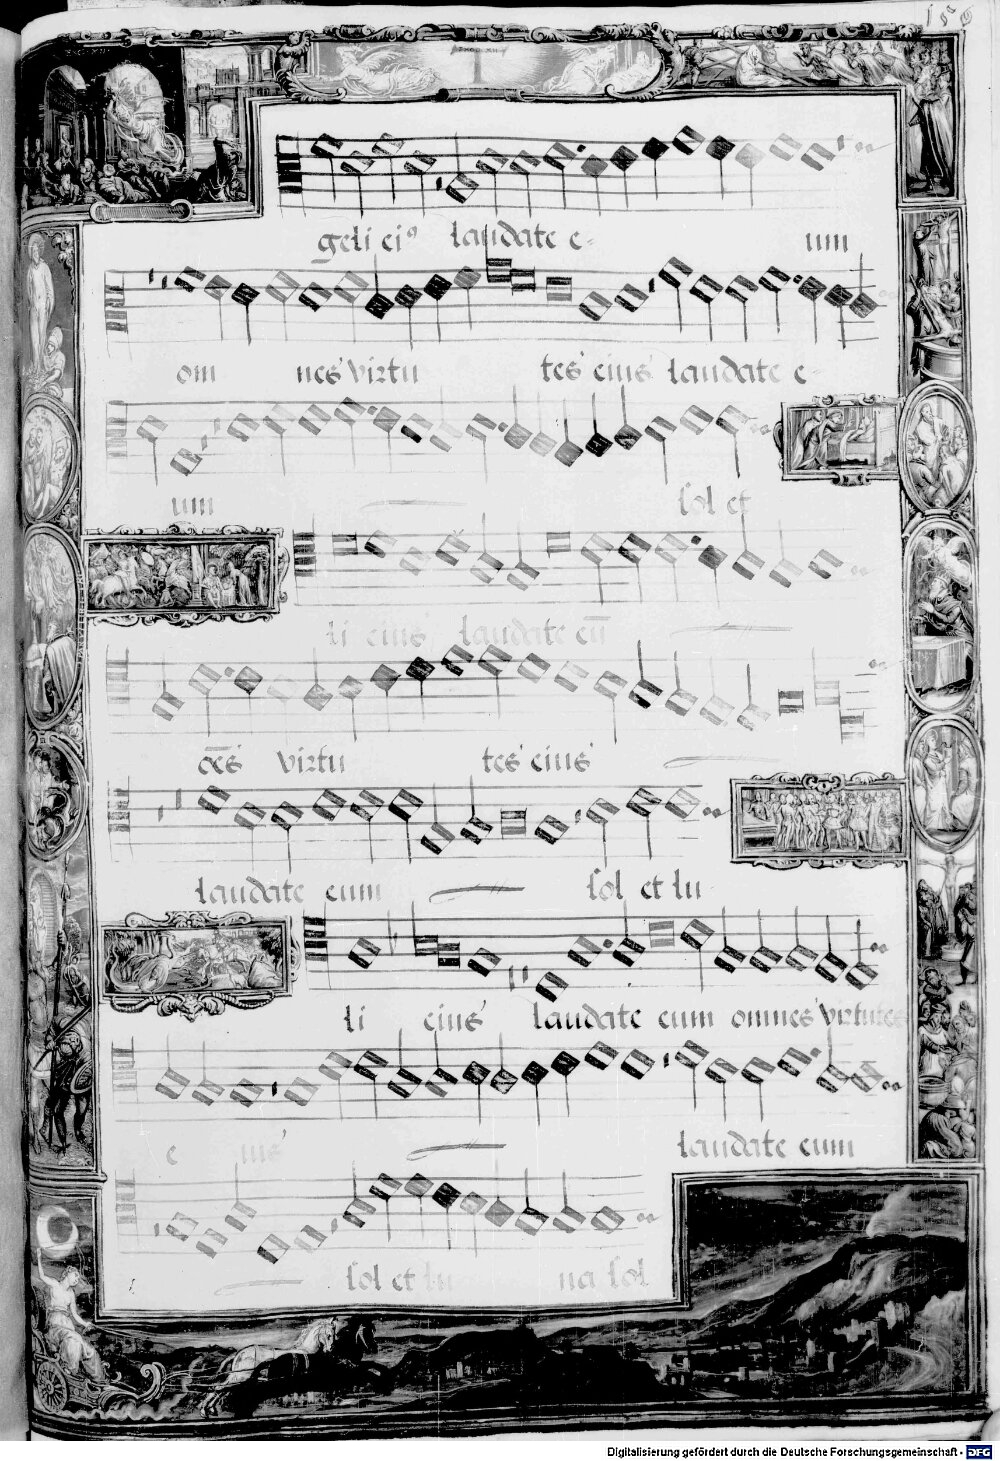 geli ei⁹ laudate e-
um
om nes virtu tes eius laudate e-
um sol et
li eius laudate eū
o̅es virtu tes eius
laudate eum sol et lu
li eius laudate eum omnes virtutes
e ius laudate eum
sol et lu na sol
Digitalisierung gefördert durch die Deutsche Forschungsgemeinschaft - DFG